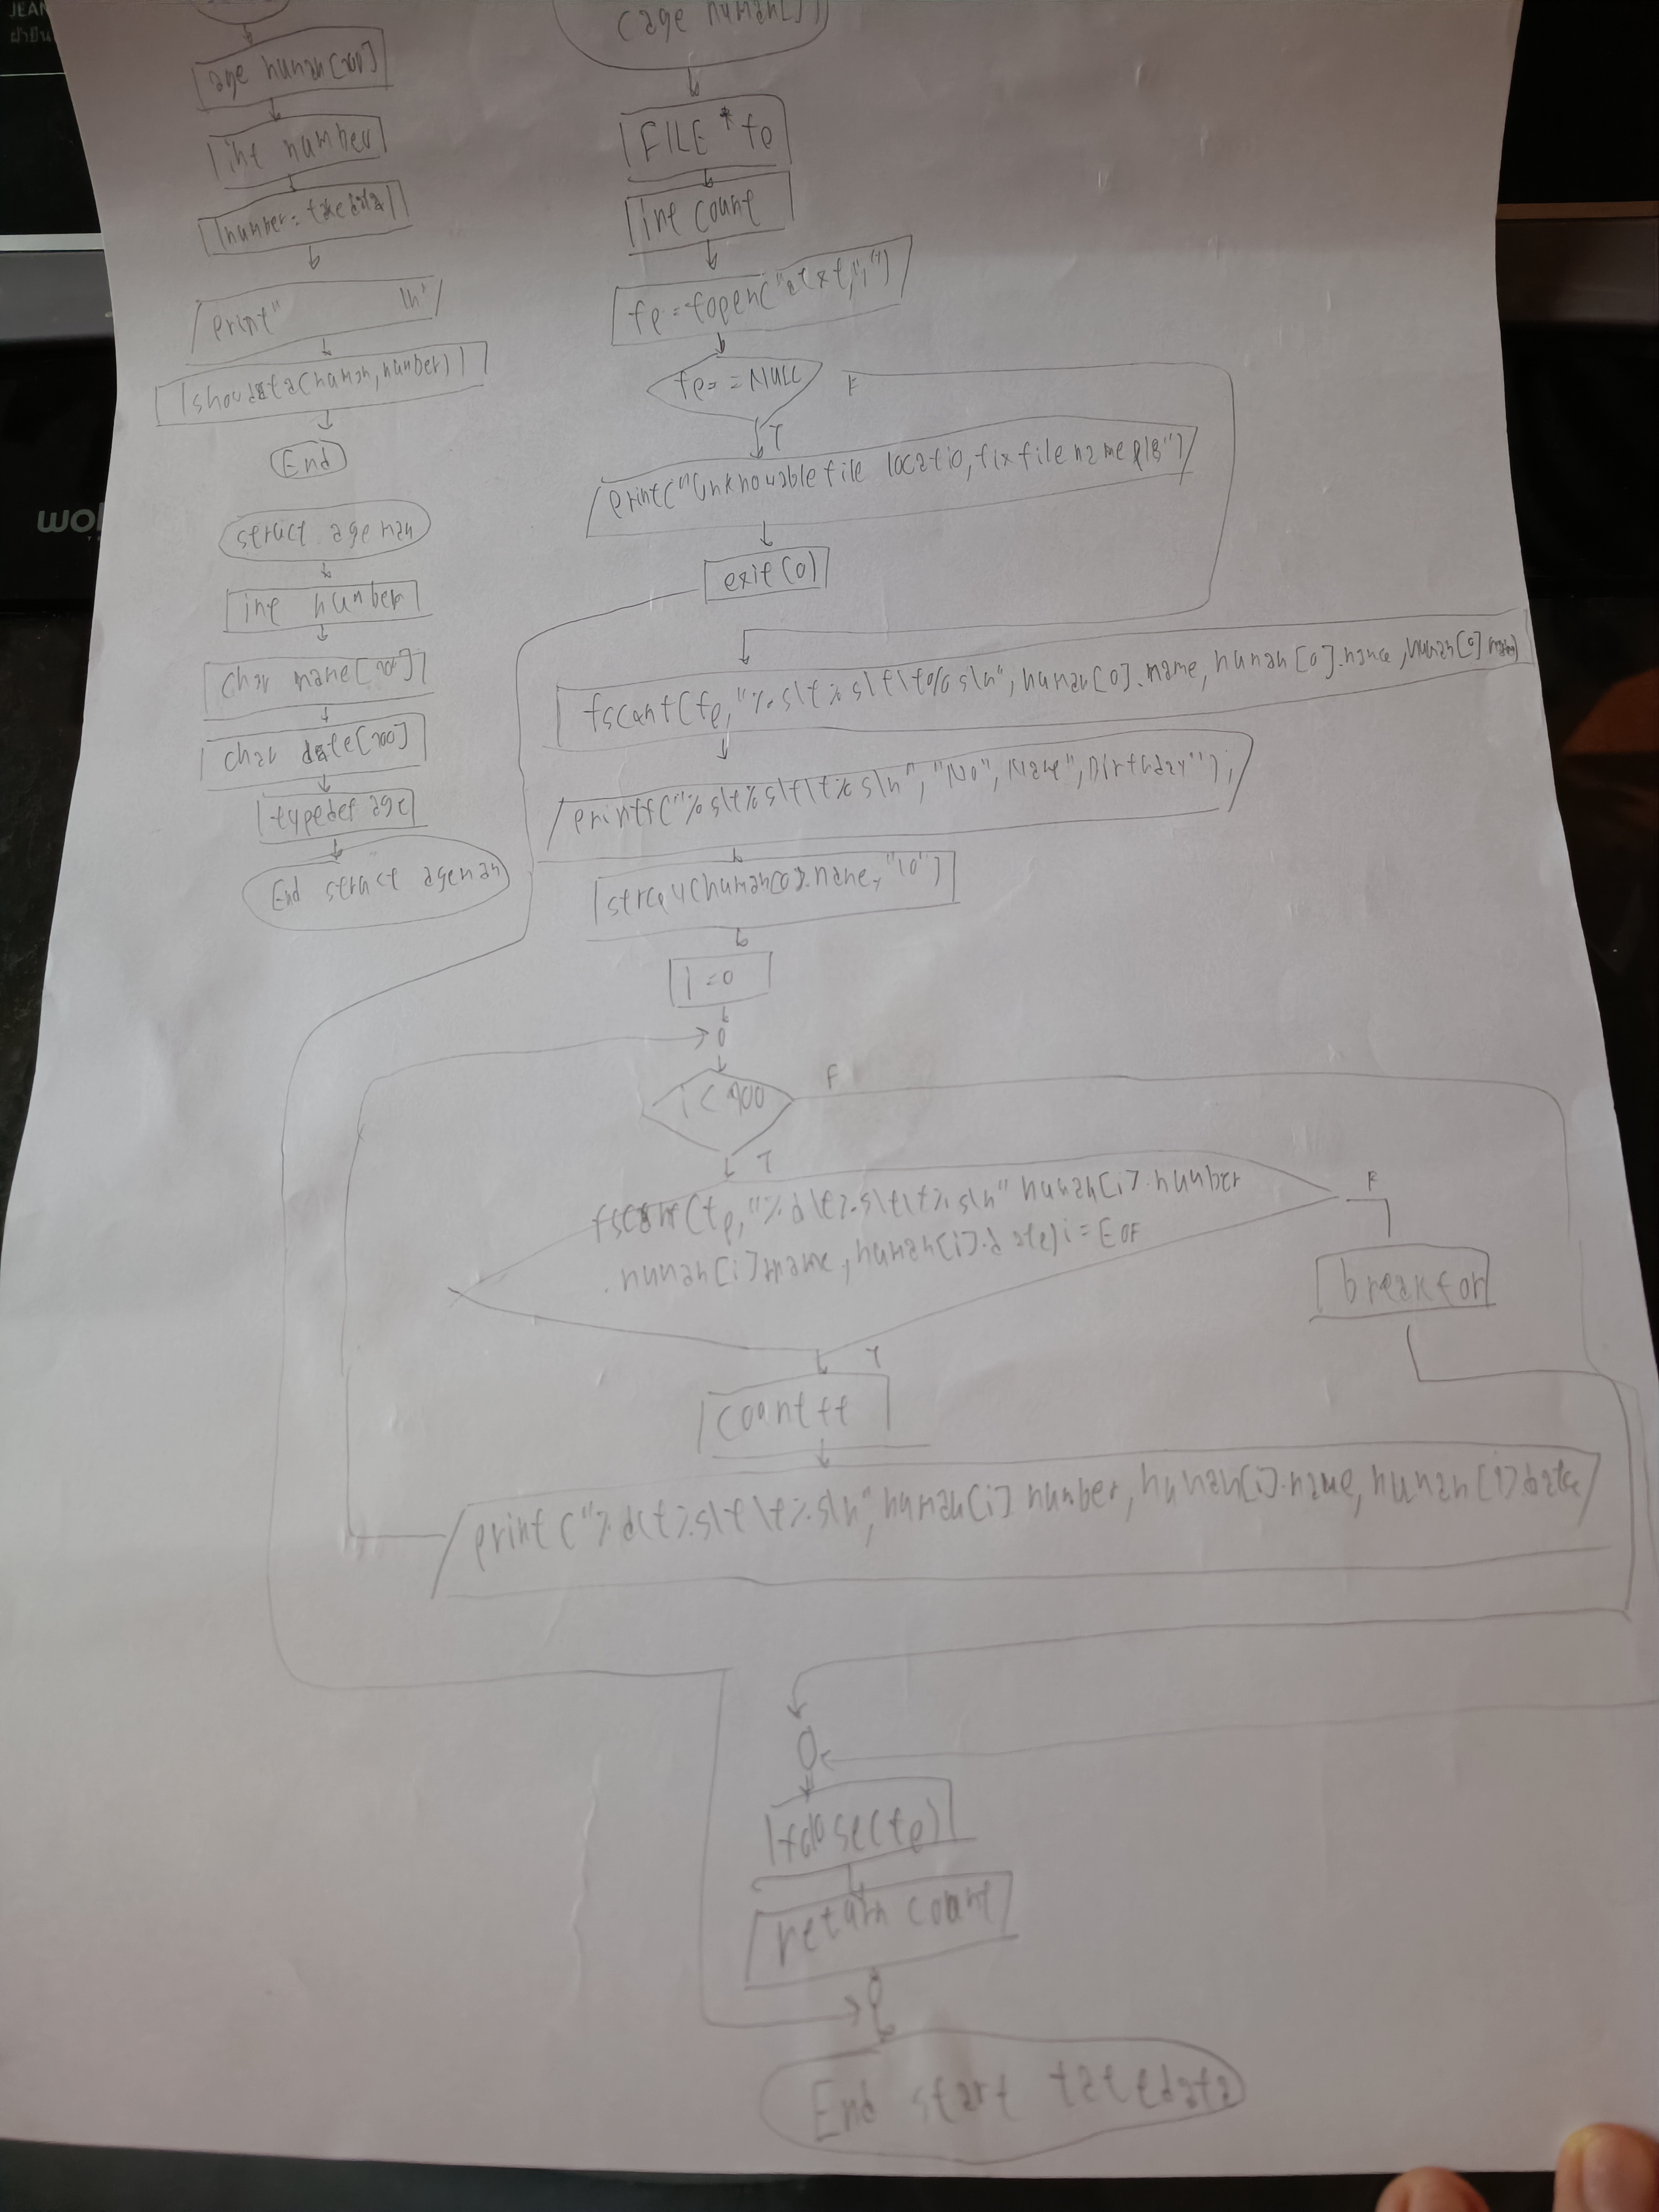 JEAN
age human[200]
int number
number = takedata
print" \n"
showdata(human, number)
End
struct ageman
int number
char name[200]
char date[200]
typedef age
End struct ageman
(age human[])
FILE * fp
int count
fp = fopen("
fp == NULL
F
T
print("Unknowable file locatio, fix file name pls")
exit(0)
fscanf(fp, "%s\t%s\t\t%s\n", human[0].name, human[0].name, human[0].name)
printf("%s\t%s\t\t%s\n", "No", Name", Birthday");
strcpy(human[0].name, "\0")
i = 0
i < 900
F
T
fscanf(fp, "%d\t%s\t\t%s\n" human[i].number
human[i].name, human[i].date) != EOF
F
T
break for
count++
print("%d\t%s\t\t%s\n", human[i].number, human[i].name, human[i].date
fclose(fp)
return count
End start takedata